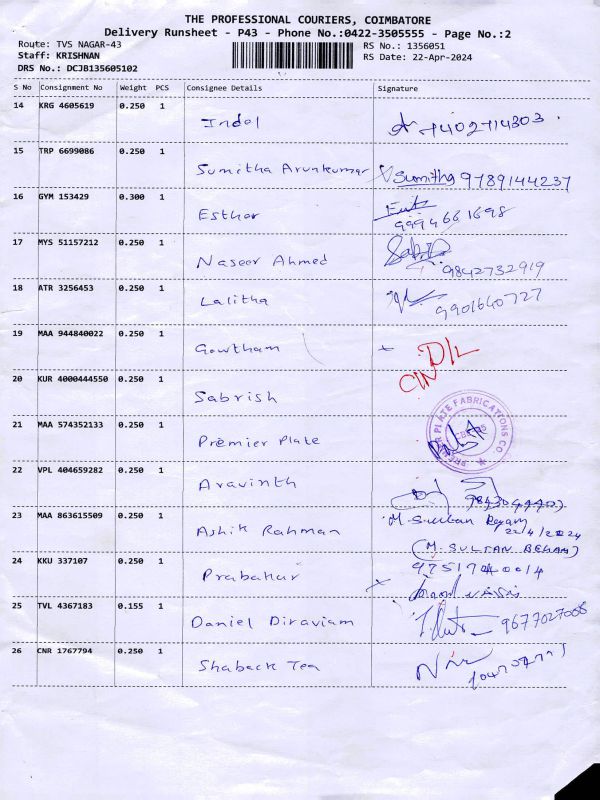 THE PROFESSIONAL COURIERS, COIMBATORE
Delivery Runsheet - P43 - Phone No.:0422-3505555 - Page No.:2
Route: TVS NAGAR-43
RS No.: 1356051
Staff: KRISHNAN
RS Date: 22-Apr-2024
DRS No.: DCJB135605102
S No Consignment No Weight PCS Consignee Details Signature
14 KRG 4605619 0.250 1 Indol 7402714303
15 TRP 6699086 0.250 1 Sumitha Arunkumar Sumitha 9789144237
16 GYM 153429 0.300 1 Esther
9994661698
17 MYS 51157212 0.250 1 Naseer Ahmed
9842732919
18 ATR 3256453 0.250 1 Lalitha 9901640727
19 MAA 944840022 0.250 1 Gowtham D/L
20 KUR 4000444550 0.250 1 Sabrish
21 MAA 574352133 0.250 1 Premier Plate
PREMIER PLATE FABRICATIONS CO
22 VPL 404659282 0.250 1 Aravinth
23 MAA 863615509 0.250 1 Ashik Rahman M. Sultan Begam
22/4/2024
(M. SULTAN BEGAM)
24 KKU 337107 0.250 1 Prabakar
25 TVL 4367183 0.155 1 Daniel Diraviam 9677027008
26 CNR 1767794 0.250 1 Shaback Tea